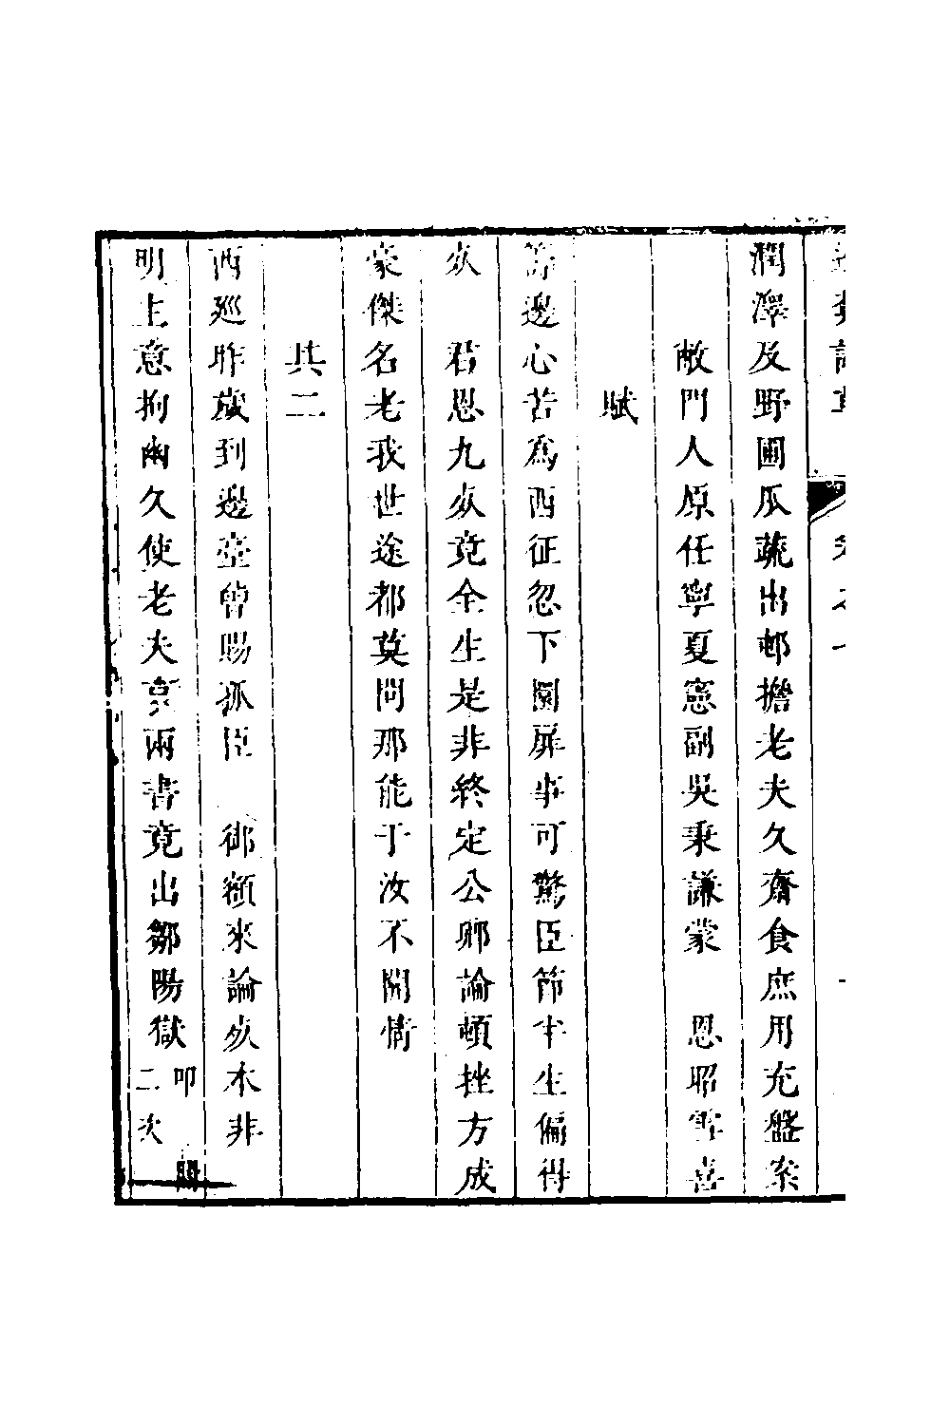 潤澤及野圃瓜蔬出邨擔老夫久齋食庶用充盤案
敝門人原任寧夏憲副吳秉謙蒙　恩昭雪喜
賦
籌邊心苦為西征忽下圜扉事可驚臣節半生偏得
㱔　君恩九㱔竟全生是非終定公卿論頓挫方成
豪傑名老我世途都莫問那能于汝不關情
其二
西廵昨歲到邊臺曾賜孤臣　御額來論㱔本非
明主意拘幽久使老夫哀兩書竟出鄒陽獄
叩閽
二次